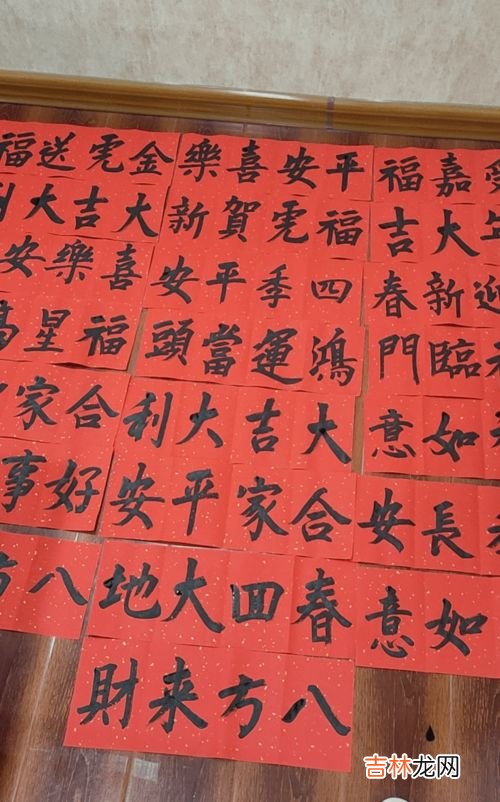 金虎送福
大吉大利
喜樂安
福星高
合家
好事
八方
平安喜樂
福虎賀新
四季平安
鴻運當頭
大吉大利
合家平安
春回大地
八方来財
嘉福
大吉
迎新春
臨門
如意
長安
如意
吉林龙网